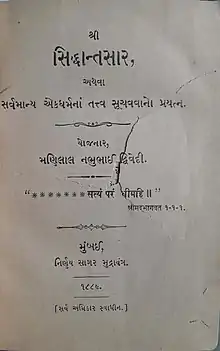 શ્રી
સિદ્ધાન્તસાર,
અથવા
સર્વમાન્ય એકધર્મનાં તત્ત્વ સૂચવવાનો પ્રયત્ન.
યોજનાર,
મણિલાલ નભુભાઈ દ્વિવેદી.
“ ******* સત્યં પરં ધીમહિ॥ ”
શ્રીમદ્ભાગવત ૧-૧-૧.
મુંબઈ,
નિર્ણય સાગર મુદ્રાયંત્ર.
૧૮૮૯.
[સર્વ અધિકાર સ્વાધીન.]